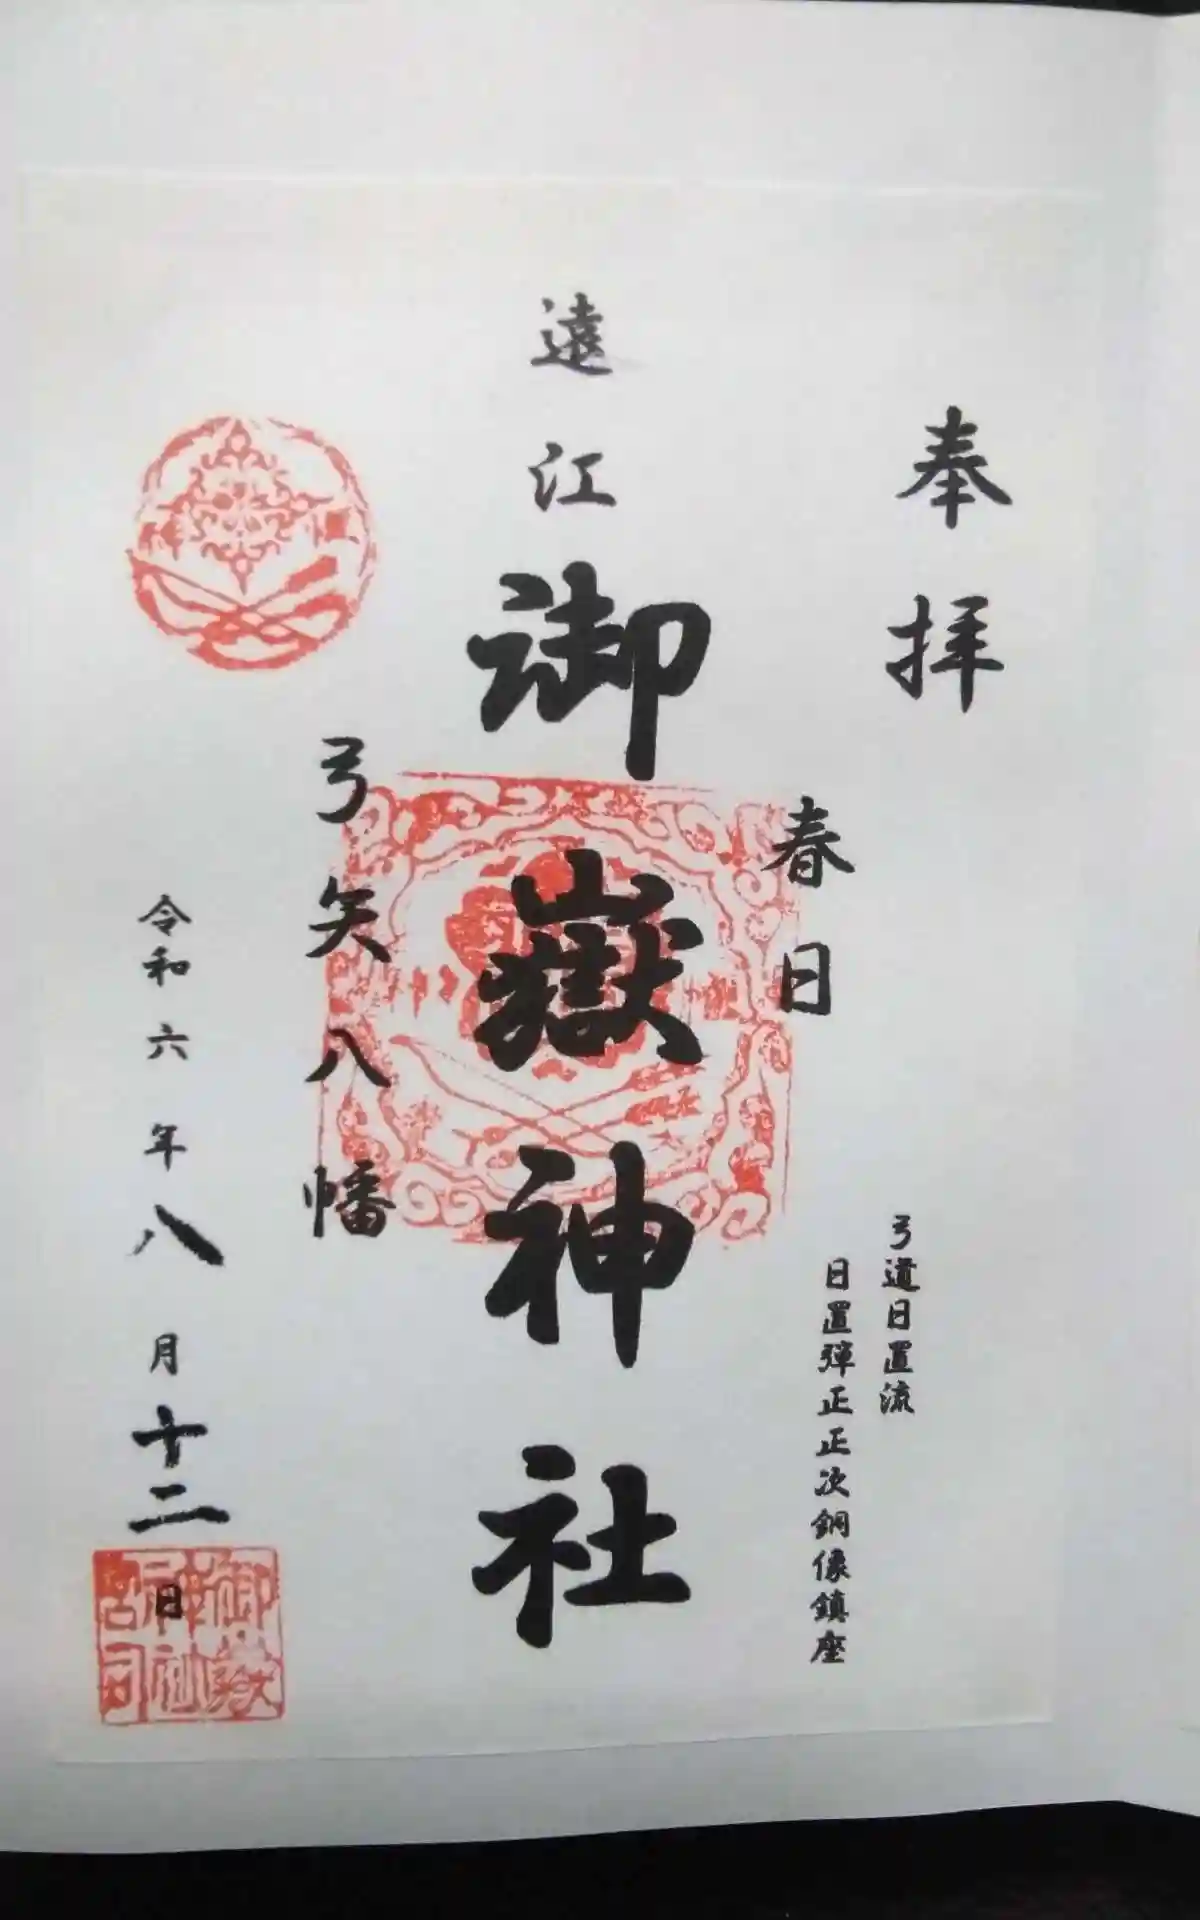 奉拝
弓道日置流
日置弾正正次銅像鎮座
春日
遠江
御嶽神社
弓矢八幡
令和六年八月十二日
御嶽
神社
宮司